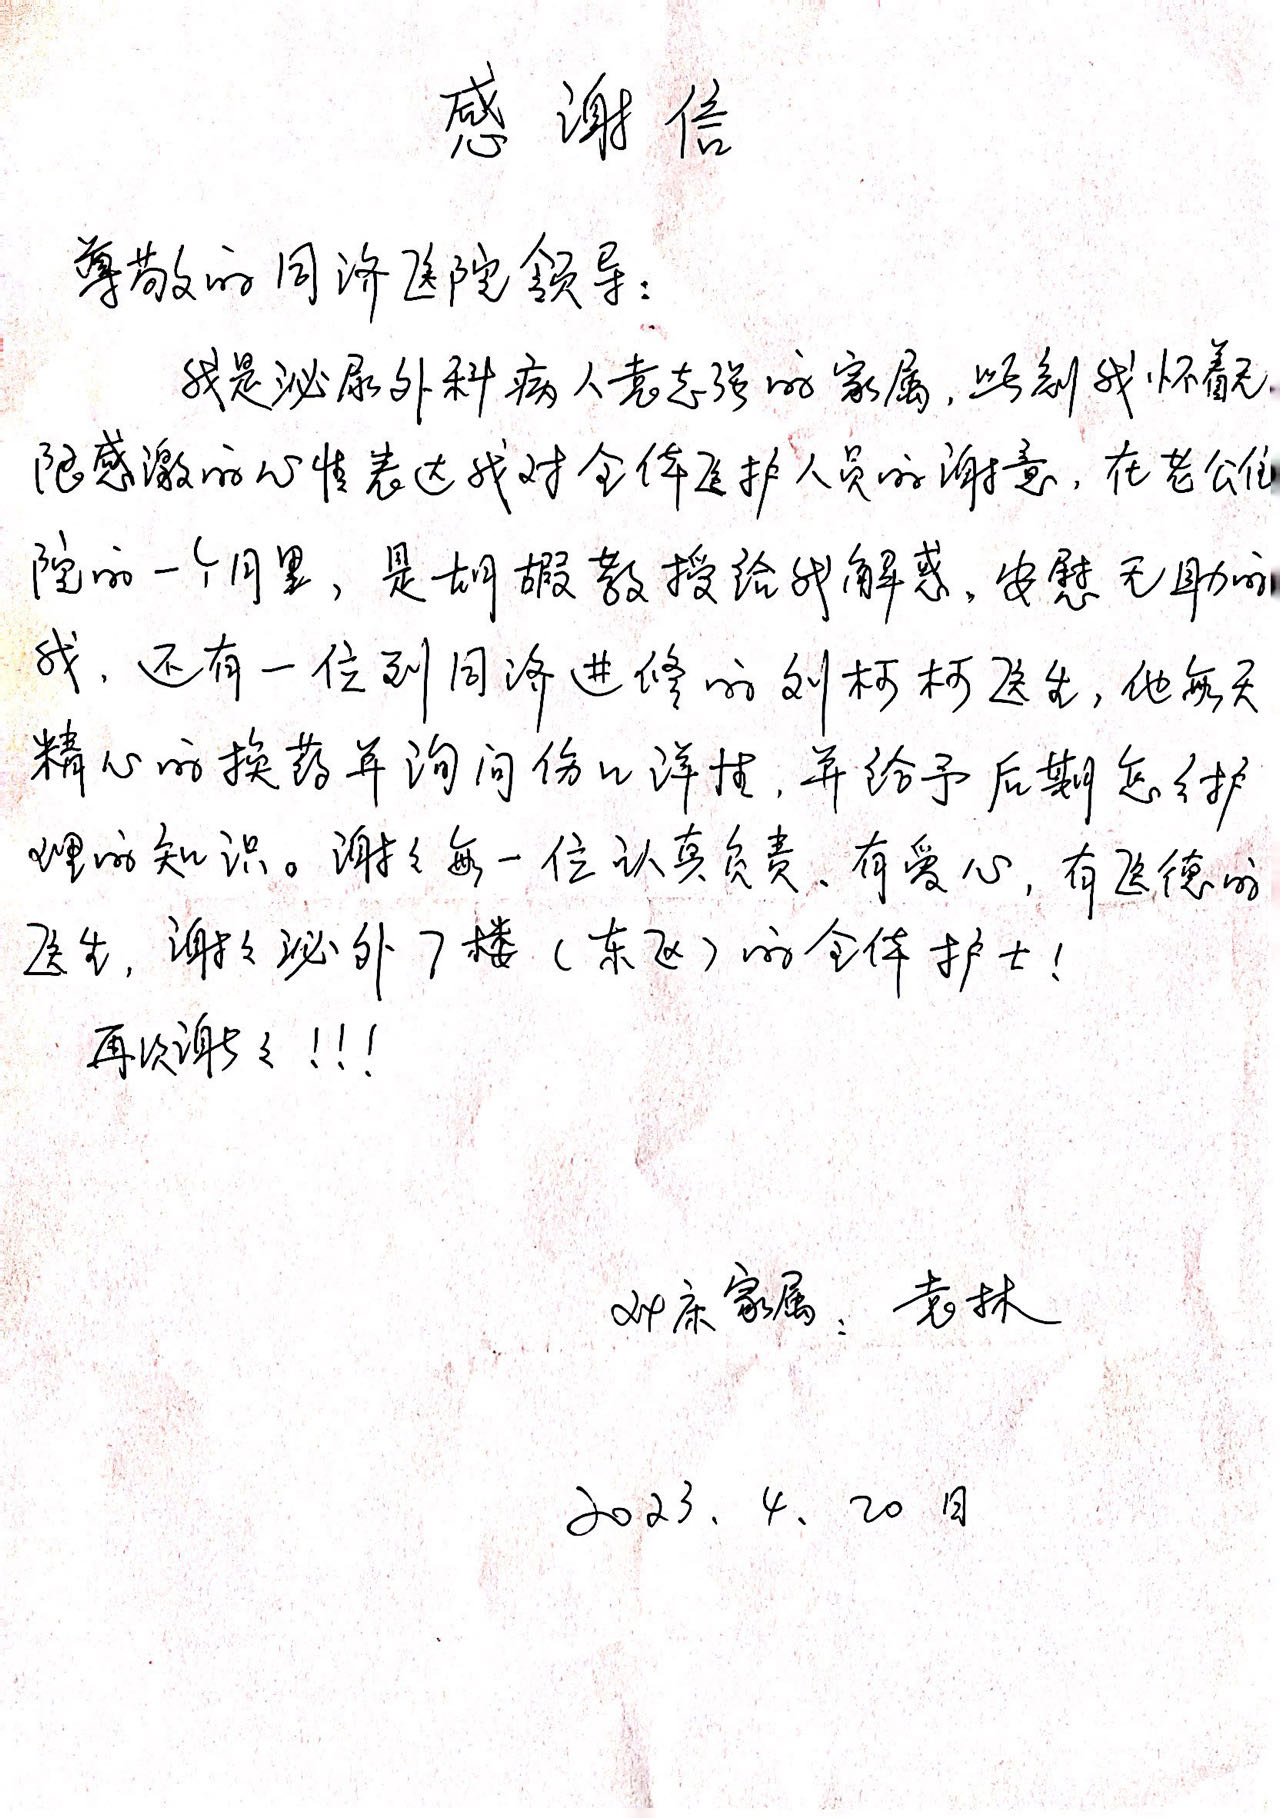 感谢信
尊敬的同济医院领导：
我是泌尿外科病人袁志强的家属，此刻我怀着无
限感激的心情表达我对全体医护人员的谢意，在老公住
院的一个月里，是胡嘏教授给我解惑，安慰无助的
我，还有一位到同济进修的刘柯柯医生，他每天
精心的换药并询问伤口详情，并给予后期怎么护
理的知识。谢谢每一位认真负责、有爱心，有医德的
医生，谢谢泌外7楼（东区）的全体护士！
再次谢谢！！！
家属：袁林
2023、4、20日